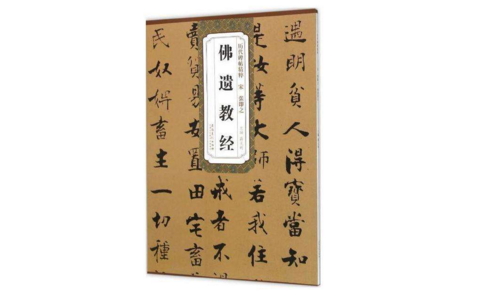 遇明貧人得寶當知
是汝等大師若我住
历代碑帖精粹 宋 张即之
佛遗教经
戒者不
賣貿易安置田宅畜
民奴婢畜生一切種